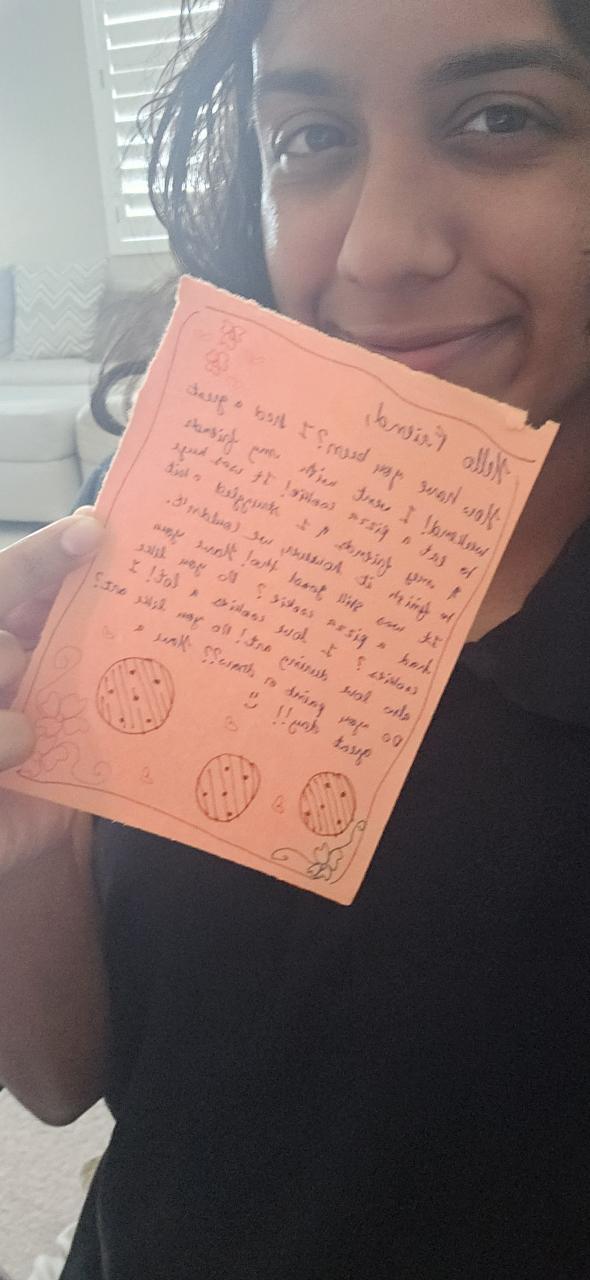 Hello Friend,
How have you been? I had a great
weekend! I went with my friends
to eat a pizza cookie! It was huge
& my friends & I struggled a bit
to finish it however, we couldn't.
It was still good tho! Have you
had a pizza cookie? Do you like
cookies? I love cookies a lot! I
also love during art! Do you like art?
Do you paint or draw?? Have a
great day!! :)